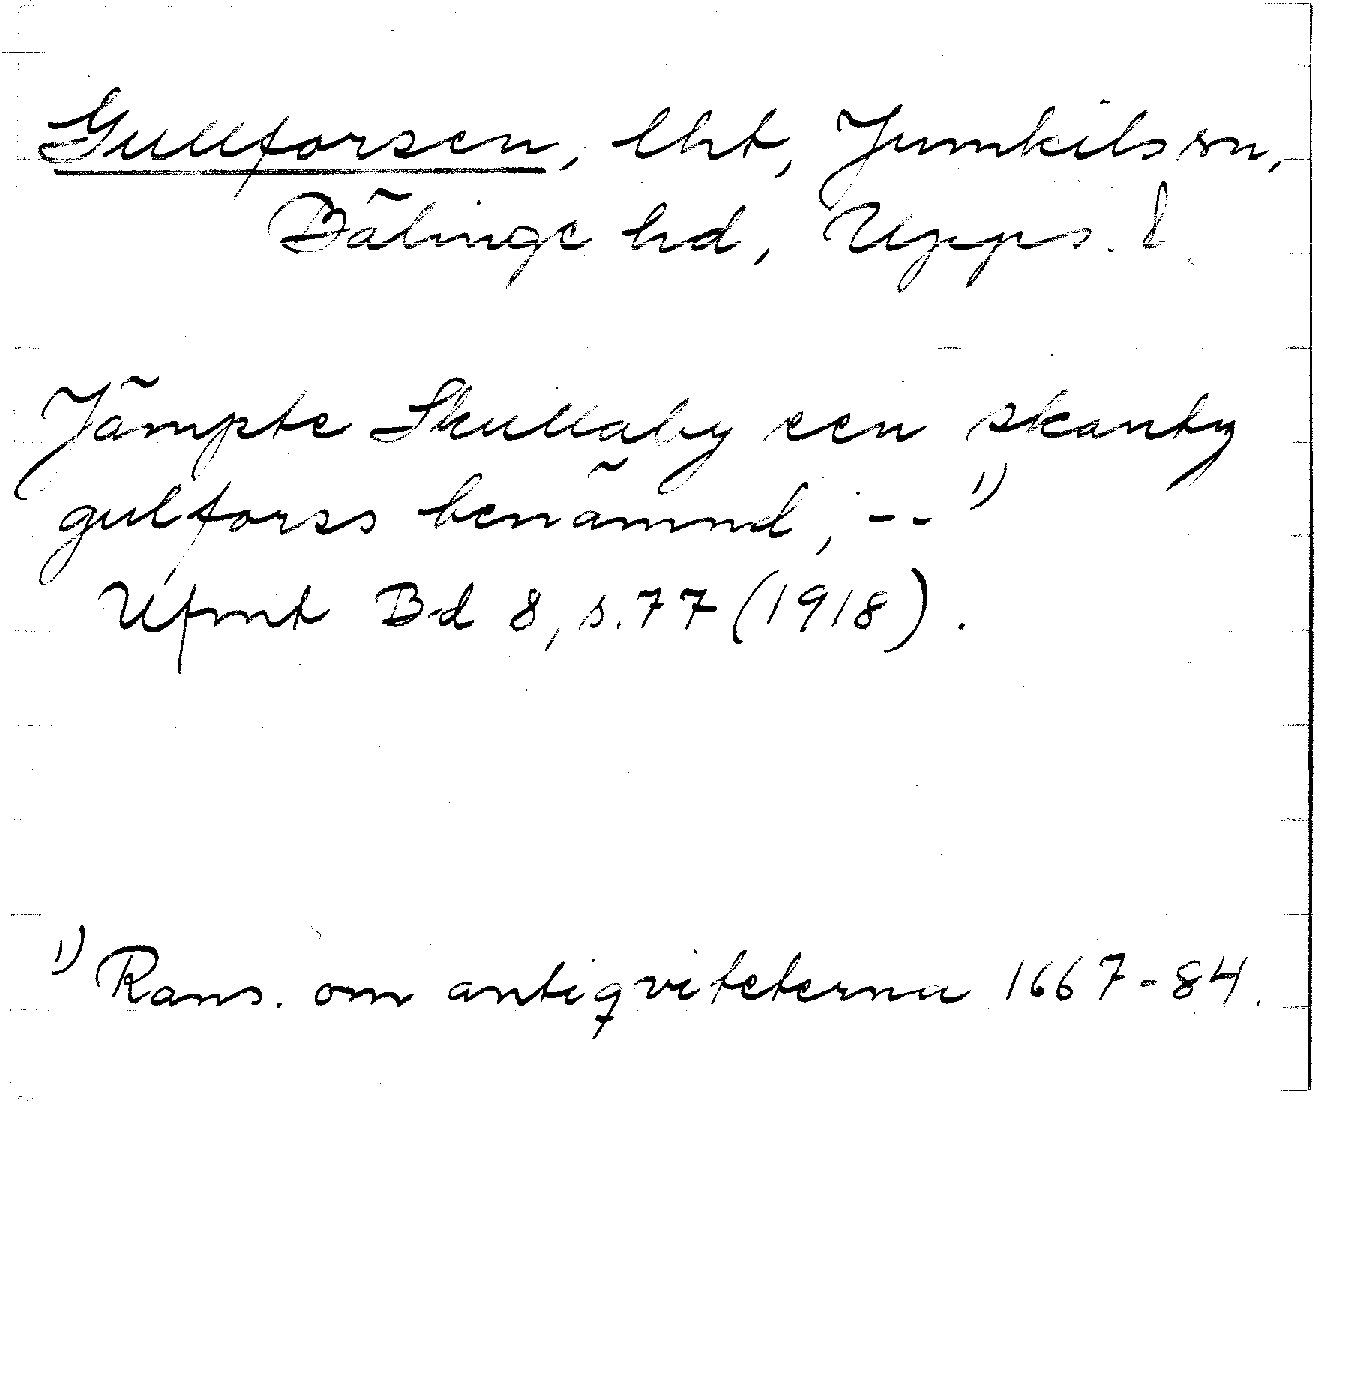 Gullforsen, lht, Jumkils sn,
Bälinge hd, Upps. l.
Jämpte Skullaby een skantz
gulforss benämnd, -- 1)
Ufmt Bd 8, s. 77 (1918).
1) Rans. om antiqviteterna 1667-84.